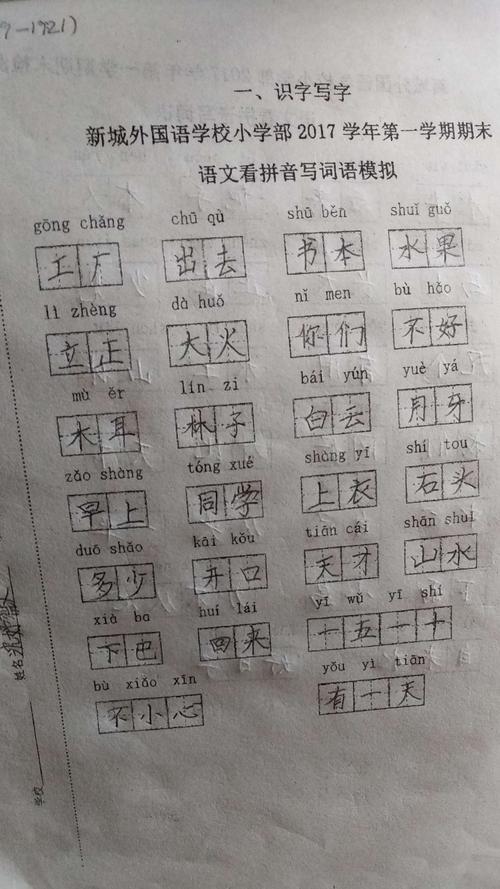 9-1921)
一、识字写字
新城外国语学校小学部 2017 学年第一学期期末
语文看拼音写词语模拟
gōng chǎng chū qù shū běn shuǐ guǒ
工厂 出去 书本 水果
lì zhèng dà huǒ nǐ men bù hǎo
立正 大火 你们 不好
mù ěr lín zi bái yún yuè yá
木耳 林子 白云 月牙
zǎo shàng tóng xué shàng yī shí tou
早上 同学 上衣 石头
duō shǎo kāi kǒu tiān cái shān shuǐ
多少 开口 天才 山水
xià ba huí lái yī wǔ yī shí
下巴 回来 一五一十
bù xiǎo xīn yǒu yì tiān
不小心 有一天
姓名
学校